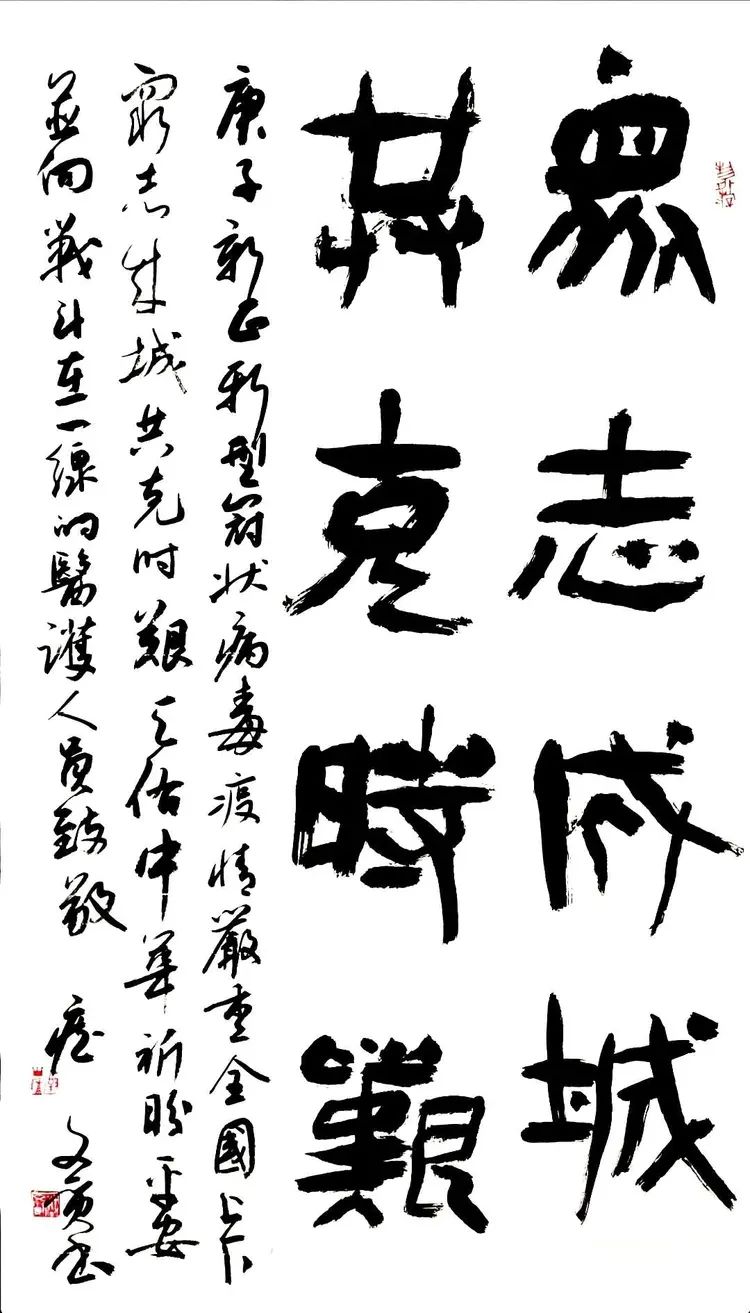 眾志成城
共克時艱
庚子新正新型冠状病毒疫情嚴重全國上下
眾志成城共克时艱天佑中華祈盼平安
並向戰斗在一線的醫護人員致敬
文寅书